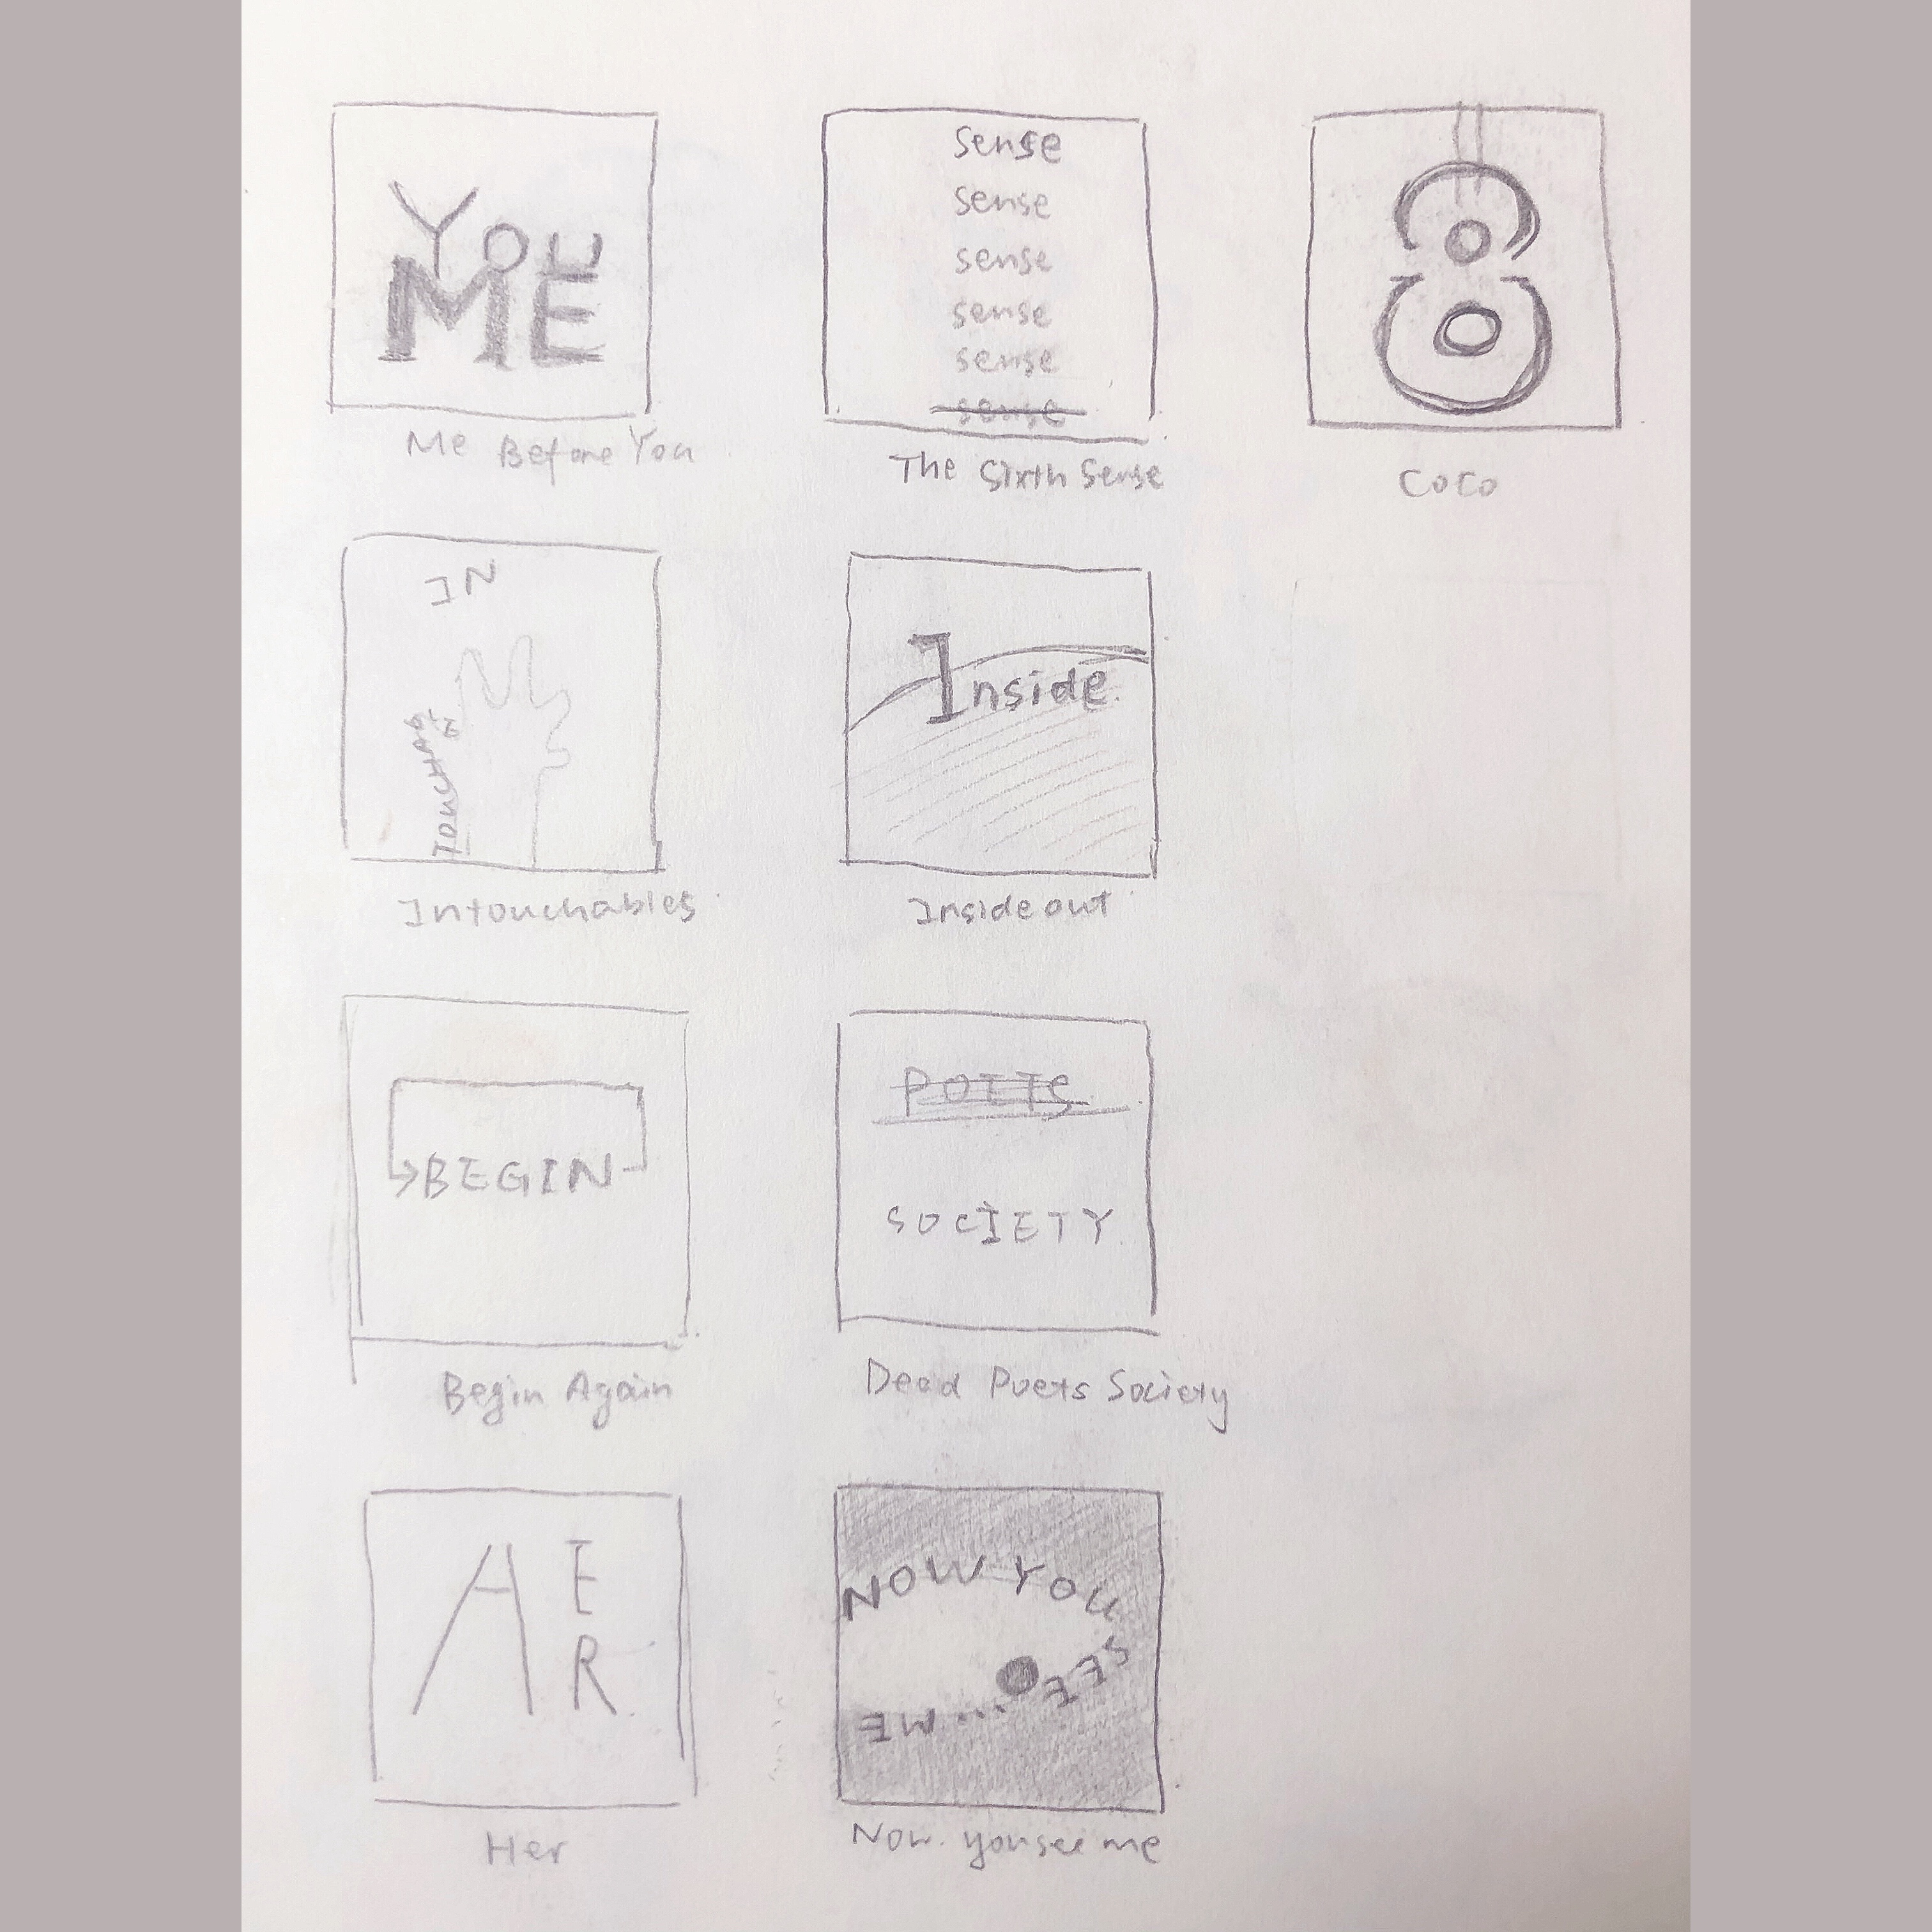 YOU
ME
Me Before You
sense
sense
sense
sense
sense
sense
The Sixth Sense
8
COCO
IN
TOUCHAB
Intouchables
Inside
Inside out
BEGIN
Begin Again
POETS
SOCIETY
Dead Poets Society
H E
R
Her
NOW YOU
SEE
...ME
Now you see me